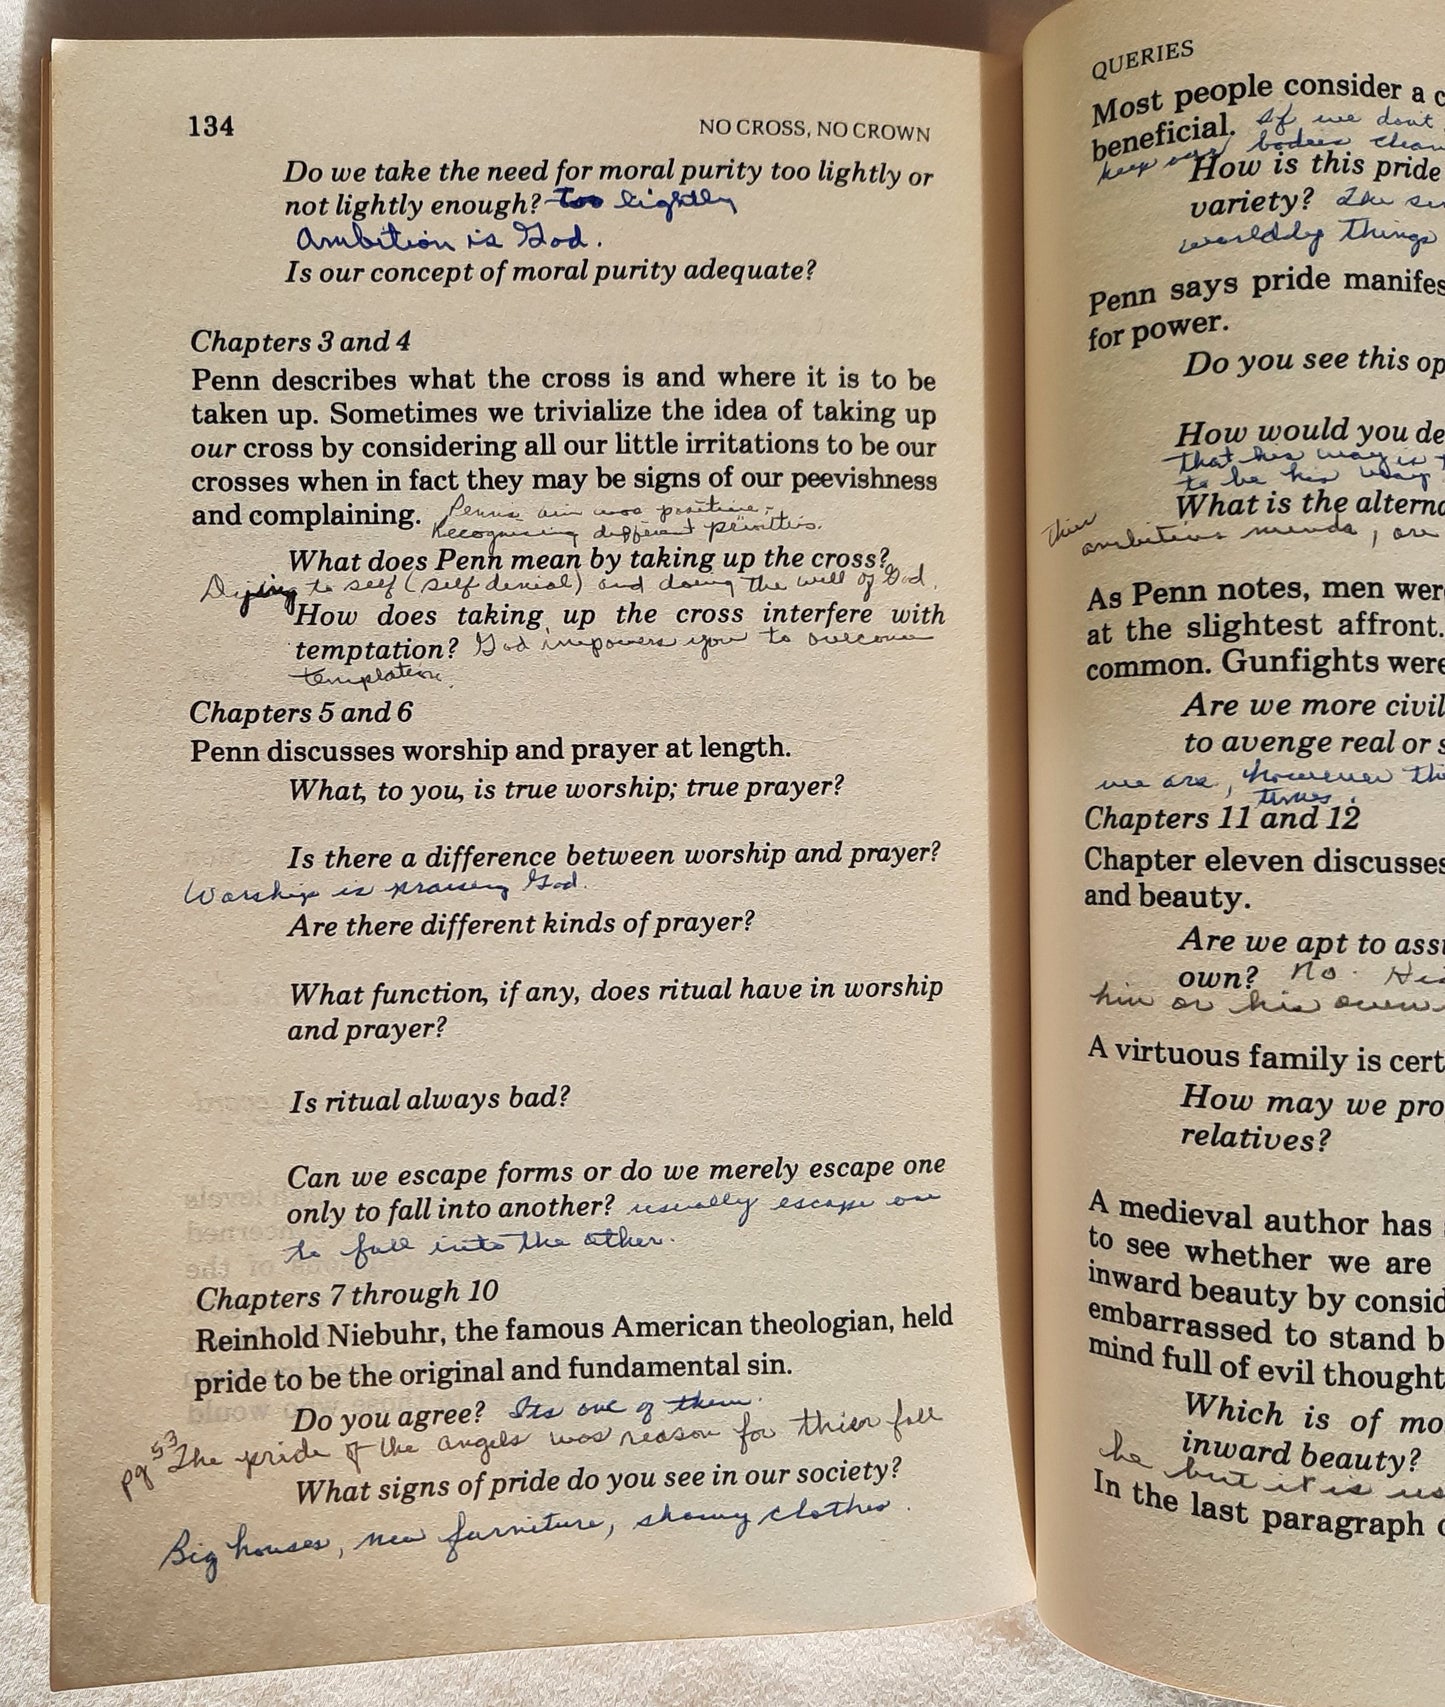 134 NO CROSS, NO CROWN
Do we take the need for moral purity too lightly or
not lightly enough? Too lightly
Ambition is God.
Is our concept of moral purity adequate?
Chapters 3 and 4
Penn describes what the cross is and where it is to be
taken up. Sometimes we trivialize the idea of taking up
our cross by considering all our little irritations to be our
crosses when in fact they may be signs of our peevishness
and complaining. Penns aim was positive -
Recognising different priorities.
What does Penn mean by taking up the cross?
Dying to self (self denial) and doing the will of God.
How does taking up the cross interfere with
temptation? God impowers you to overcome
temptation.
Chapters 5 and 6
Penn discusses worship and prayer at length.
What, to you, is true worship; true prayer?
Is there a difference between worship and prayer?
Worship is praising God.
Are there different kinds of prayer?
What function, if any, does ritual have in worship
and prayer?
Is ritual always bad?
Can we escape forms or do we merely escape one
only to fall into another? usually escape one
to fall into the other.
Chapters 7 through 10
Reinhold Niebuhr, the famous American theologian, held
pride to be the original and fundamental sin.
Do you agree? Its one of them.
pg 53 The pride of the angels was reason for thier fall
What signs of pride do you see in our society?
Big houses, new furniture, showy clothes.
QUERIES
Most people consider a c
beneficial. If we dont
keep our bodies clean
How is this pride
variety? The
worlddy things
Penn says pride manifes
for power.
Do you see this op
How would you de
that his way is
to be his way
What is the alterna
Thier
ambitious minds, are
As Penn notes, men were
at the slightest affront.
common. Gunfights were
Are we more civil
to avenge real or s
we are, however th
times.
Chapters 11 and 12
Chapter eleven discusses
and beauty.
Are we apt to assu
own? No. His
him or his own
A virtuous family is cert
How may we pro
relatives?
A medieval author has
to see whether we are
inward beauty by consid
embarrassed to stand b
mind full of evil thought
Which is of mo
inward beauty?
he but it is us
In the last paragraph o